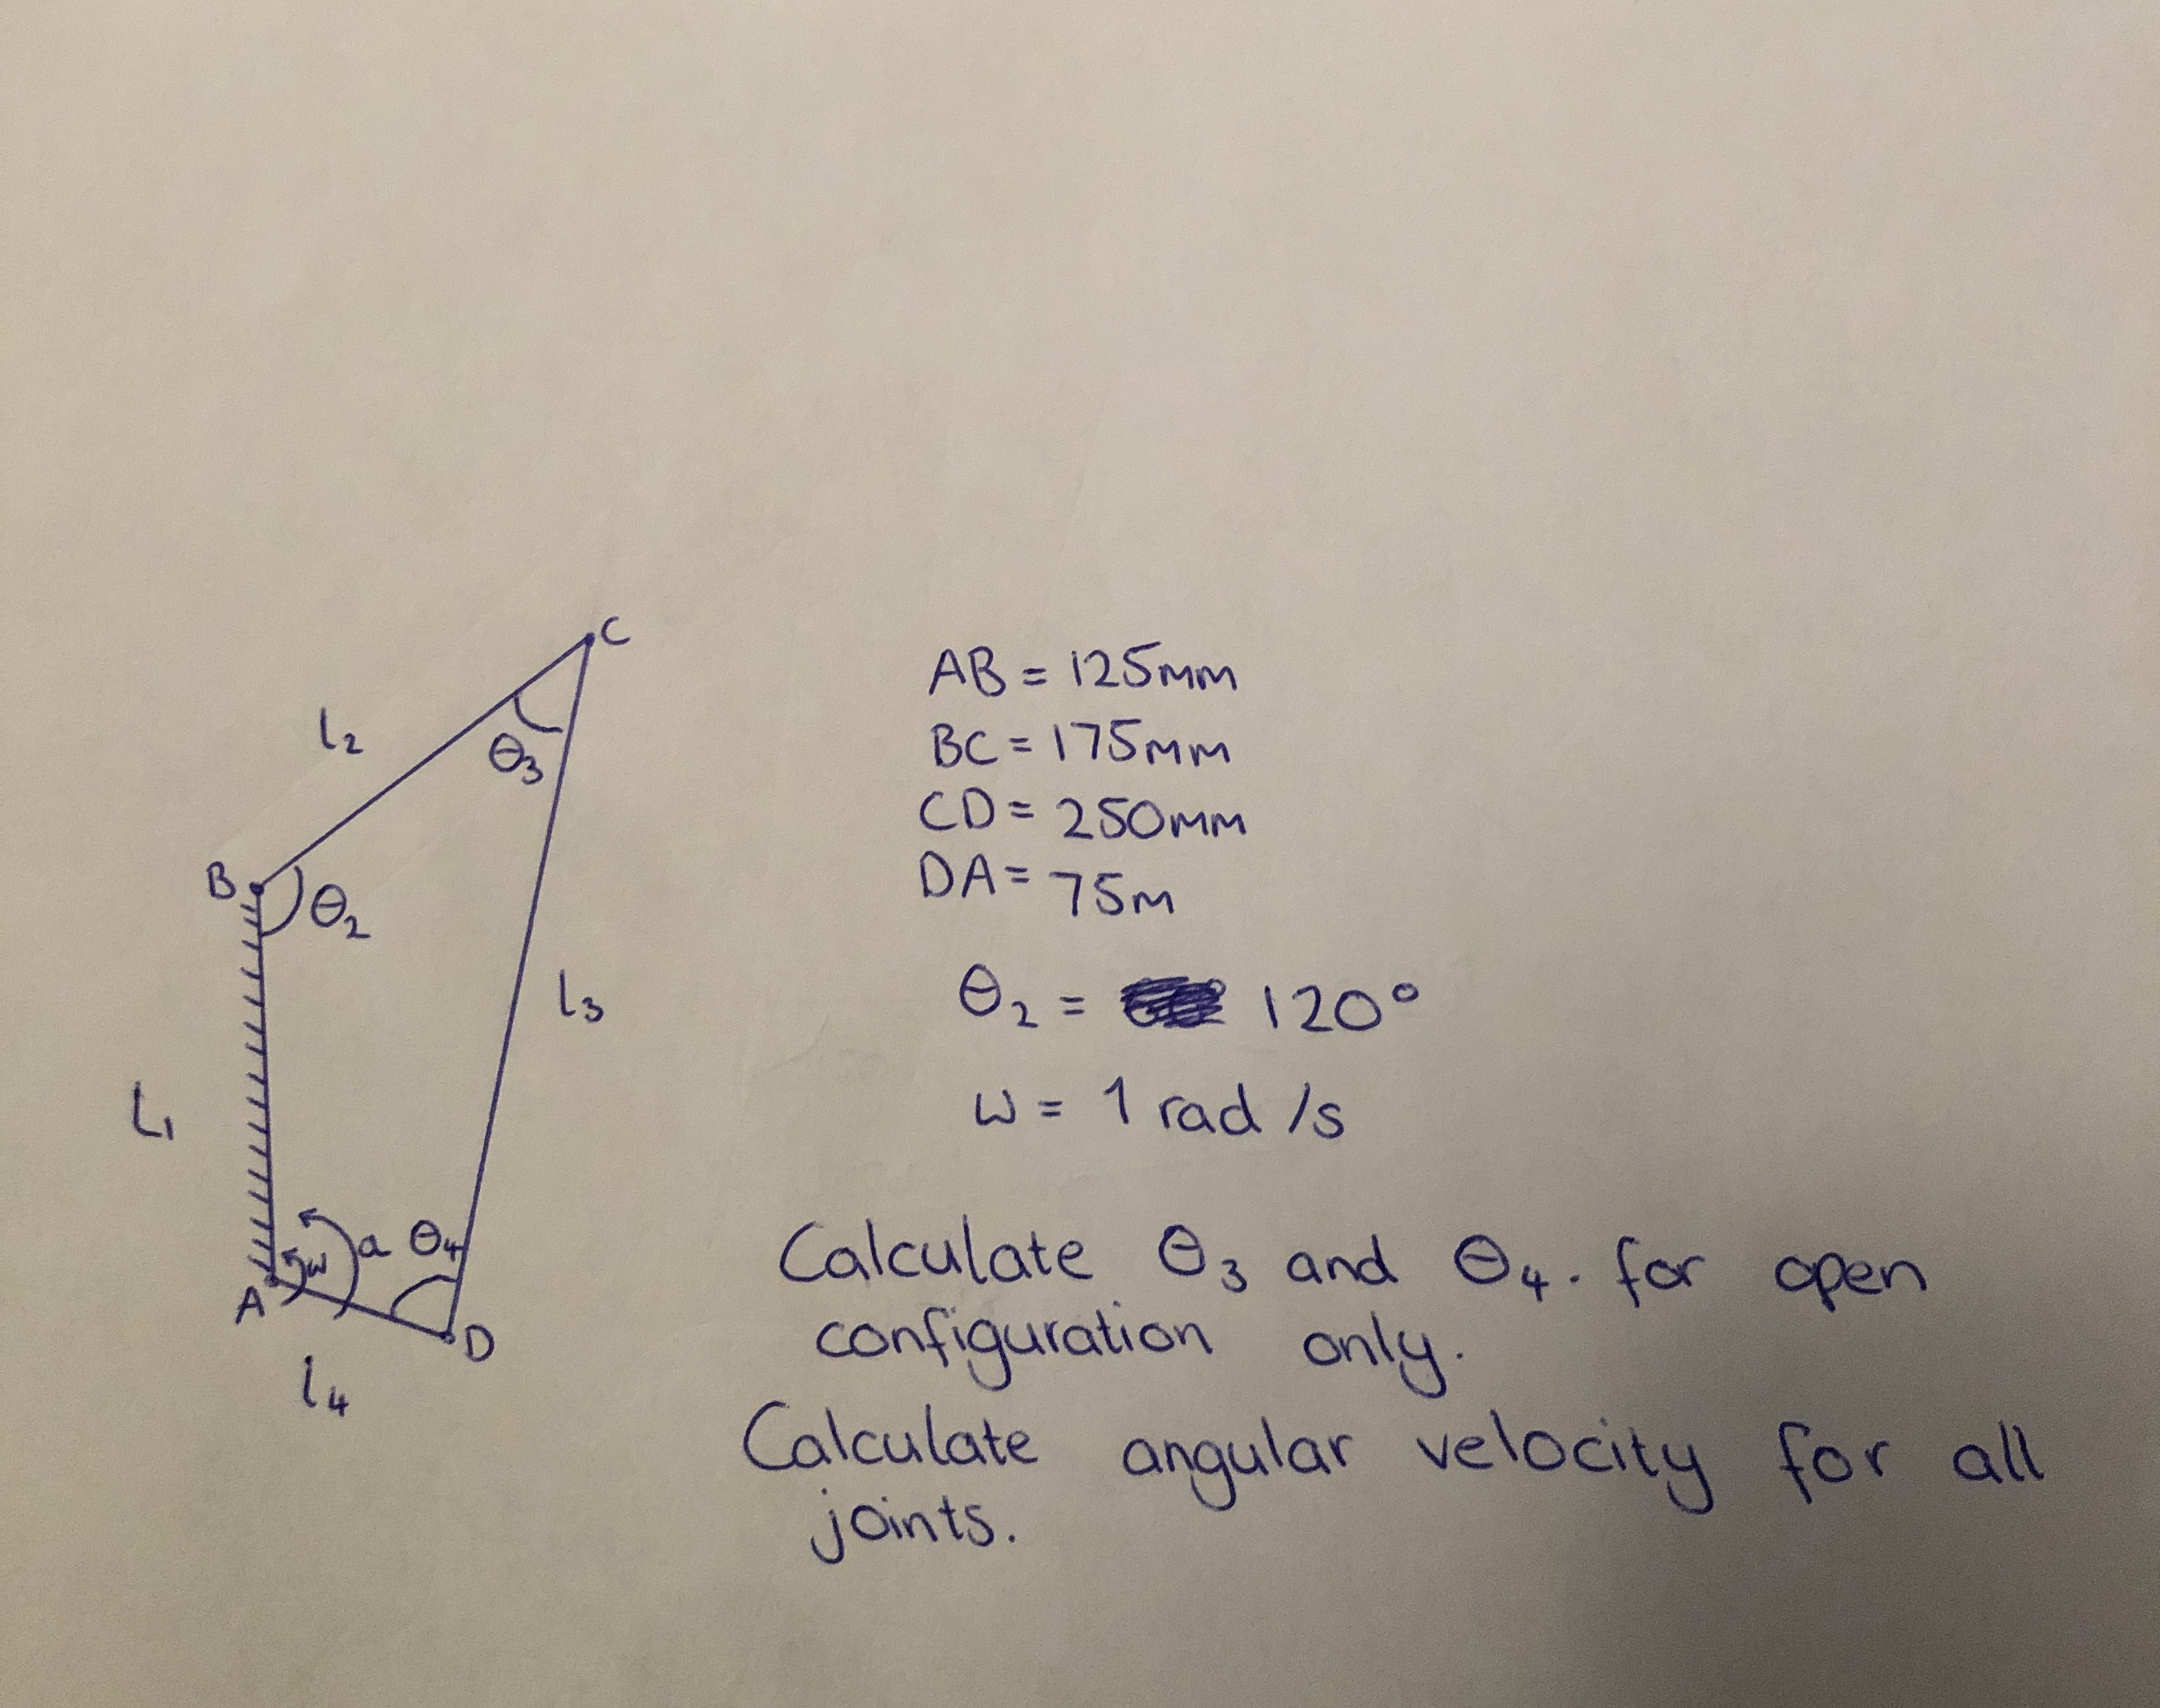 C
l₂
θ₃
B
θ₂
l₃
L₁
A
w
a
θ₄
D
l₄
AB = 125mm
BC = 175mm
CD = 250mm
DA = 75m
θ₂ = 120°
ω = 1 rad /s
Calculate θ₃ and θ₄. for open
configuration only.
Calculate angular velocity for all
joints.